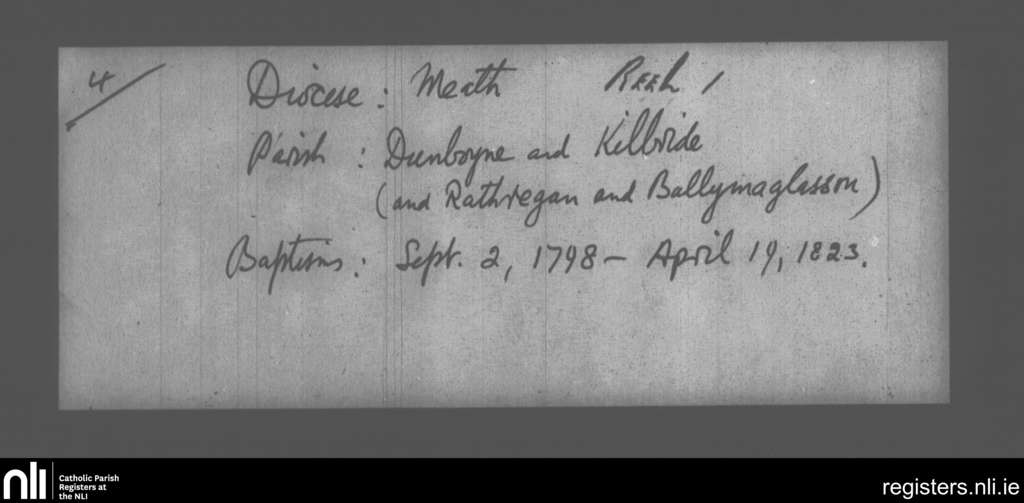 4
Diocese: Meath Reel 1
Parish: Dunboyne and Kilbride
(and Rathregan and Ballymaglasson)
Baptisms: Sept. 2, 1798 – April 19, 1823.
nli
Catholic Parish
Registers at
the NLI
registers.nli.ie